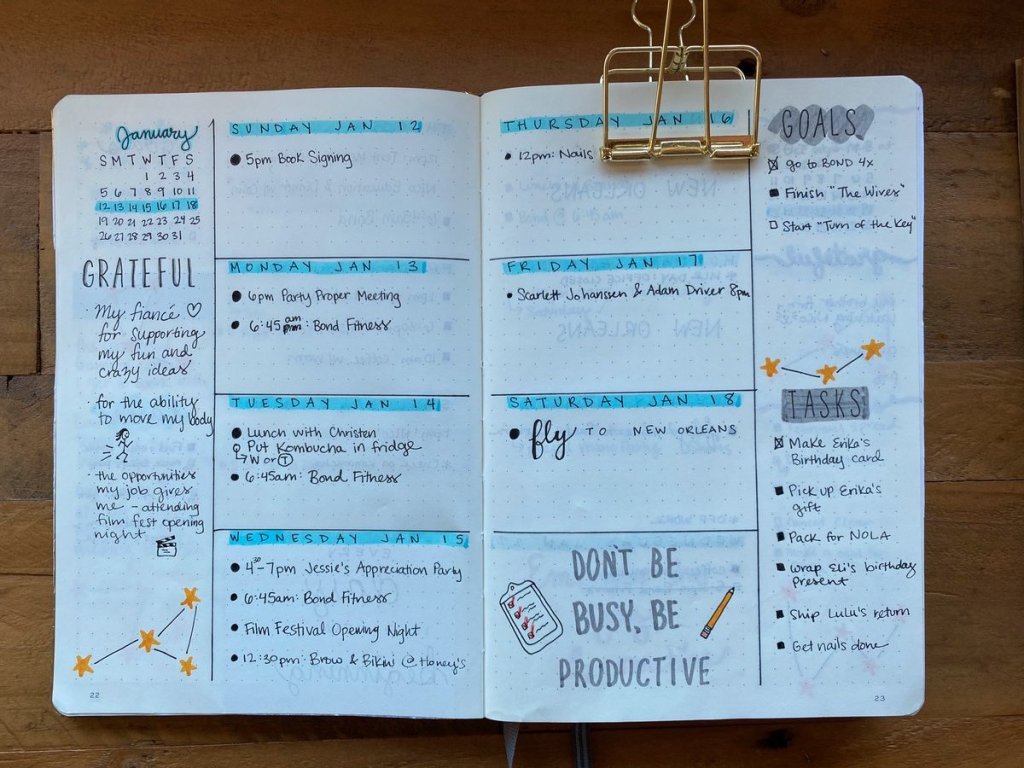 January
S M T W T F S
1 2 3 4
5 6 7 8 9 10 11
12 13 14 15 16 17 18
19 20 21 22 23 24 25
26 27 28 29 30 31
GRATEFUL
My fiancé ♡
for supporting
my fun and
crazy ideas
for the ability
to move my body
the opportunities
my job gives
me - attending
film fest opening
night
22
SUNDAY JAN 12
5pm Book Signing
MONDAY JAN 13
6pm Party Proper Meeting
6:45 am pm: Bond Fitness
TUESDAY JAN 14
Lunch with Christen
Put Kombucha in fridge
↳ W or T
6:45am: Bond Fitness
WEDNESDAY JAN 15
4:30-7pm Jessie's Appreciation Party
6:45am: Bond Fitness
Film Festival Opening Night
12:30pm: Brow & Bikini @ Honey's
THURSDAY JAN 16
12pm: Nails
FRIDAY JAN 17
Scarlett Johanssen & Adam Driver 8pm
SATURDAY JAN 18
fly TO NEW ORLEANS
DON'T BE
BUSY, BE
PRODUCTIVE
GOALS
go to BOND 4x
Finish "The Wives"
Start "Turn of the Key"
TASKS
Make Erika's
Birthday card
Pick up Erika's
gift
Pack for NOLA
wrap Eli's birthday
present
Ship Lulu's return
Get nails done
23